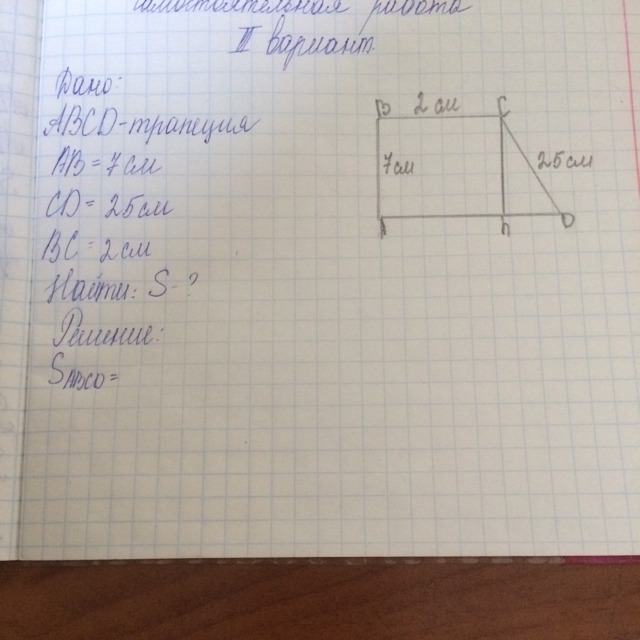 самостоятельная работа
II вариант
Дано:
ABCD-трапеция
AB=7см
CD=25см
BC=2см
Найти: S-?
Решение:
SABCD=
B 2 см C
7см 25см
A h D